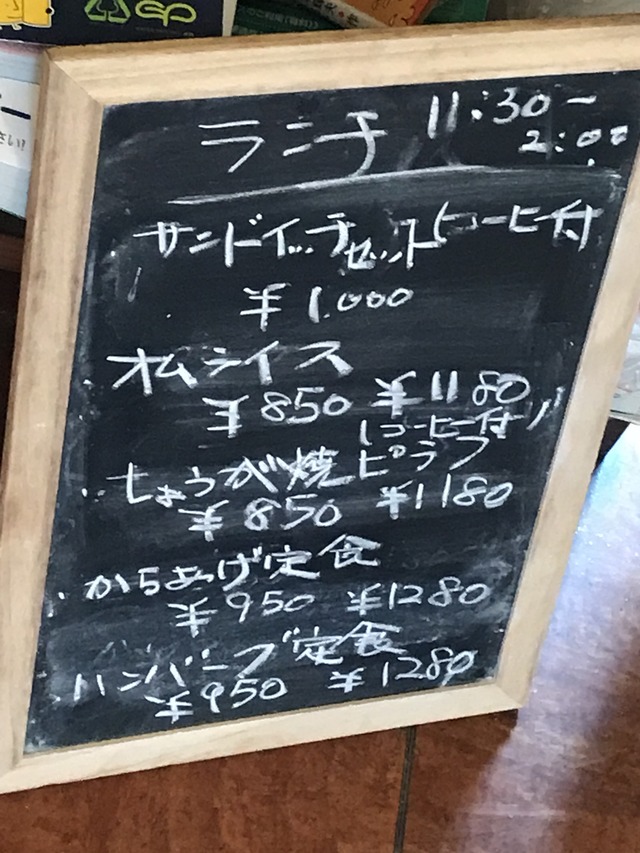 ランチ 11:30-
2:00
サンドイッチセット(コーヒー付
¥1.000
オムライス
¥850 ¥1180
(コーヒー付)
しょうが焼ピラフ
¥850 ¥1180
からあげ定食
¥950 ¥1280
ハンバーグ定食
¥950 ¥1280
さい!